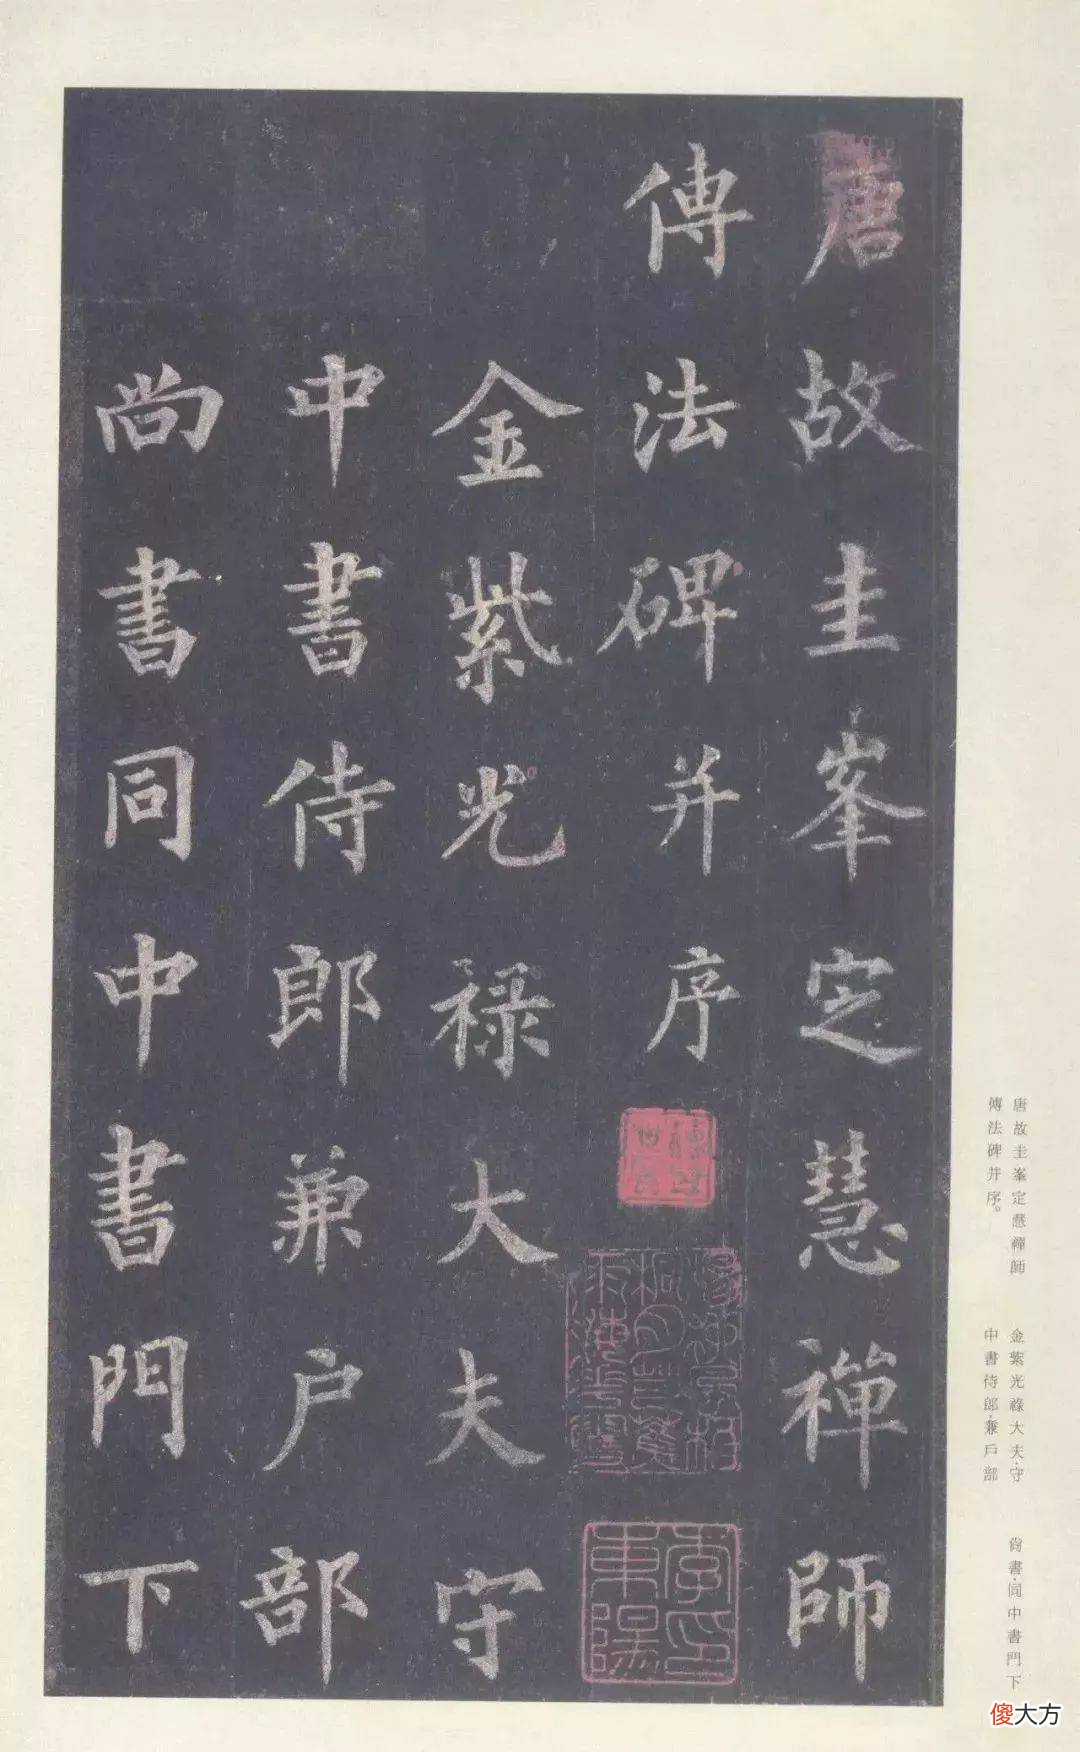 唐故圭峯定慧禪師
傳法碑并序
金紫光祿大夫守
中書侍郎兼戶部
尚書同中書門下
李印
東陽
唐故圭峯定慧禪師
傳法碑并序。
金紫光祿大夫·守
中書侍郎·兼戶部
尚書·同中書門下
傻大方